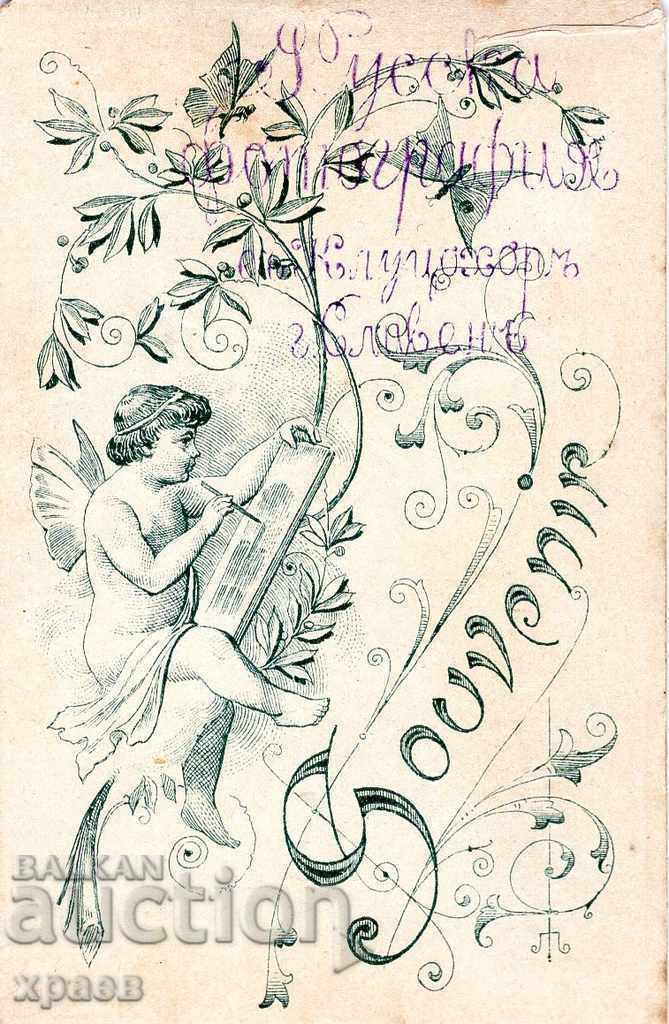 Русска
фотография
Клуцохоръ
г. Словенъ
Souvenir
BALKAN
auction
храев